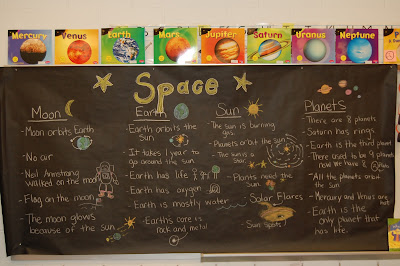 Mercury
Venus
Earth
Mars
Jupiter
Saturn
Uranus
Neptune
P
Space
Moon
- Moon orbits Earth
- No air
- Neil Armstrong
walked on the moon
- Flag on the moon
- The moon glows
because of the sun
Earth
- Earth orbits the
sun
- It takes 1 year to
go around the sun
- Earth has life
- Earth has oxygen
- Earth is mostly water
- Earth's core is
rock and metal
Sun
- The sun is burning
gas.
- Planets orbit the sun
- The sun is a
- Plants need the
sun
- Solar Flares
- Sun spots
Planets
- There are 8 planets
- Saturn has rings
- Earth is the third planet
- There used to be 9 planets
now we have 8
- All the planets orbit
the sun
- Mercury and Venus are
- Earth is the
only planet that
has life.